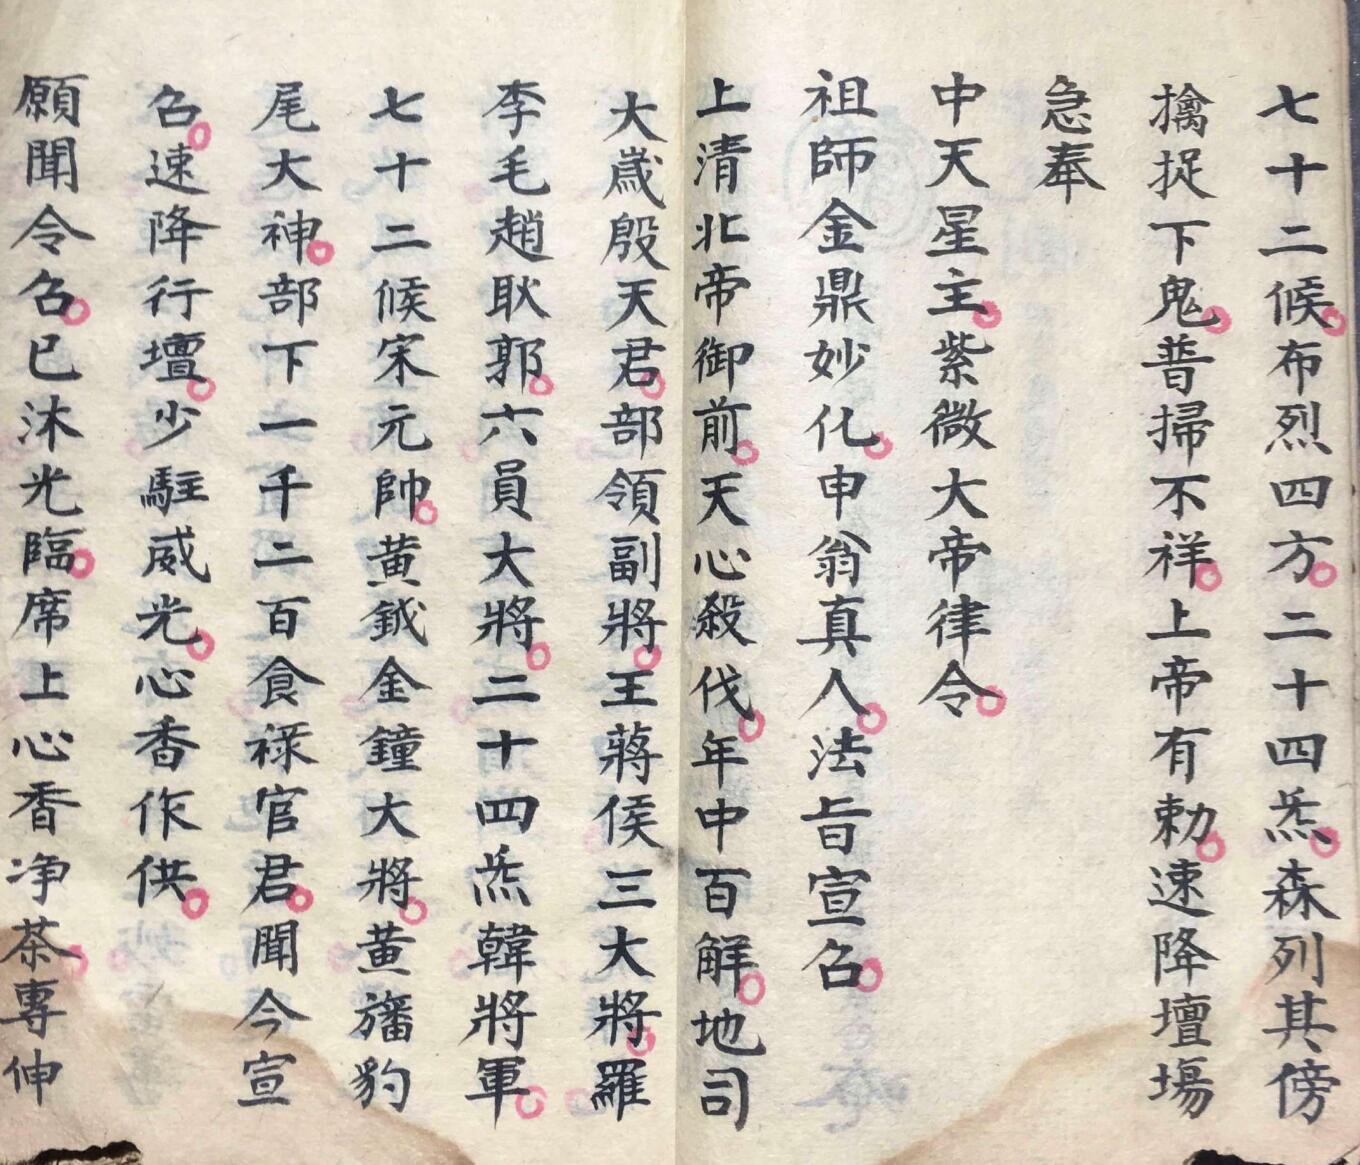 七十二候布烈四方二十四炁森列其傍
擒捉下鬼普掃不祥上帝有勅速降壇場
急奉
中天星主紫微大帝律令
祖師金鼎妙化申翁真人法旨宣召
上清北帝御前天心殺伐年中百解地司
大歲殷天君部領副將王蔣侯三大將羅
李毛趙耿郭六員大將二十四炁韓將軍
七十二候宋元帥黃鉞金鐘大將黃旛豹
尾大神部下一千二百食祿官君聞今宣
召速降行壇少駐威光心香作供
願聞令召已沐光臨席上心香净茶專伸